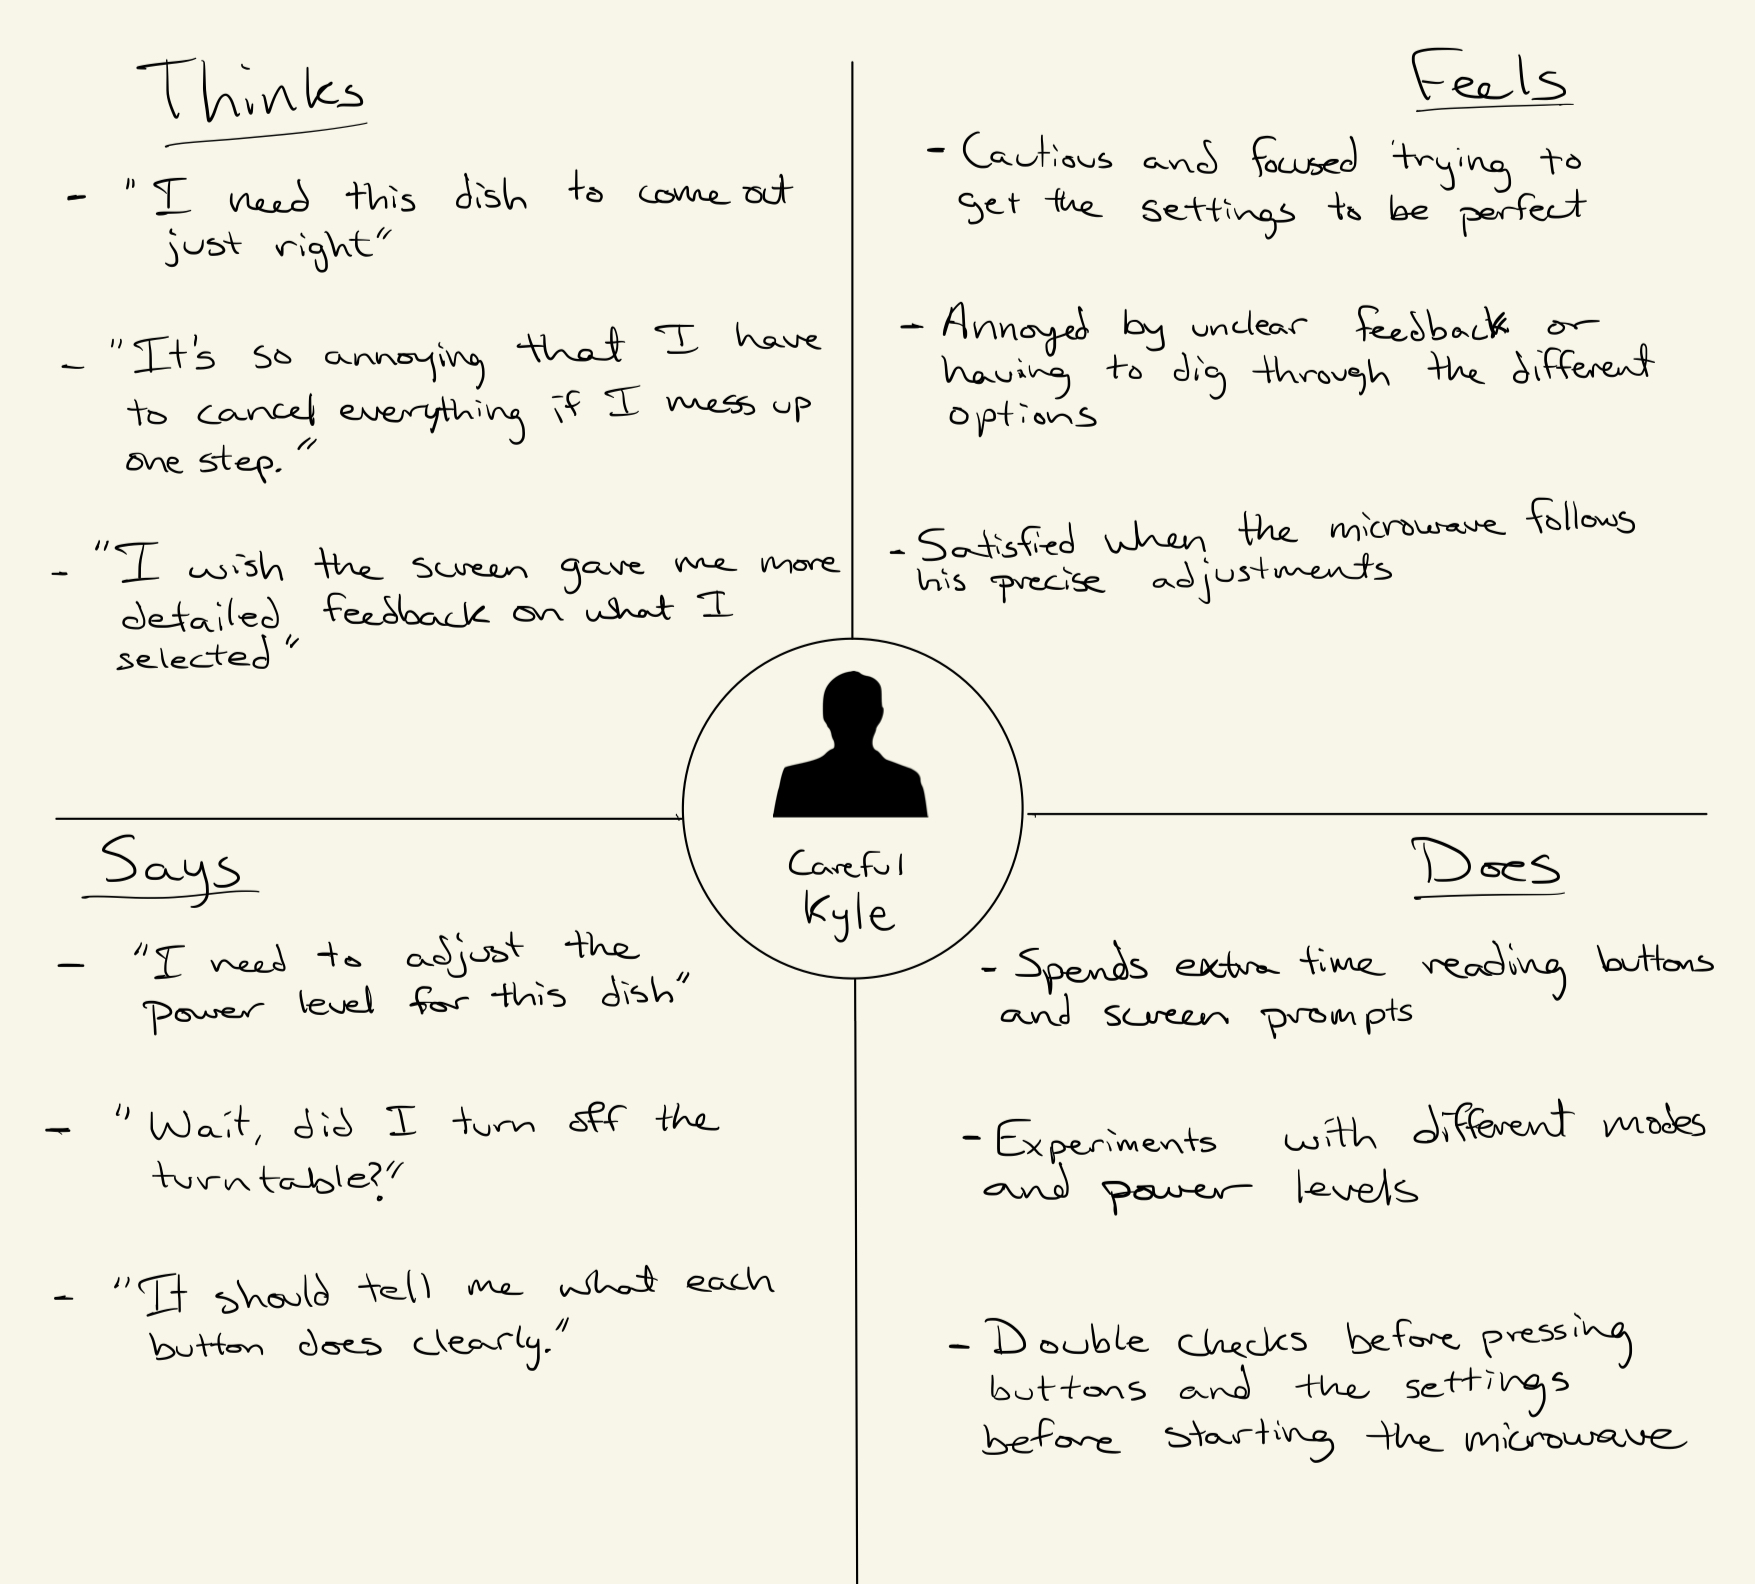 Thinks
- "I need this dish to come out
just right"
- "It's so annoying that I have
to cancel everything if I mess up
one step."
- "I wish the screen gave me more
detailed feedback on what I
selected"
Feels
- Cautious and focused trying to
get the settings to be perfect
- Annoyed by unclear feedback or
having to dig through the different
options
- Satisfied when the microwave follows
his precise adjustments
Careful
Kyle
Says
- "I need to adjust the
power level for this dish"
- "Wait, did I turn off the
turntable?"
- "It should tell me what each
button does clearly."
Does
- Spends extra time reading buttons
and screen prompts
- Experiments with different modes
and power levels
- Double checks before pressing
buttons and the settings
before starting the microwave